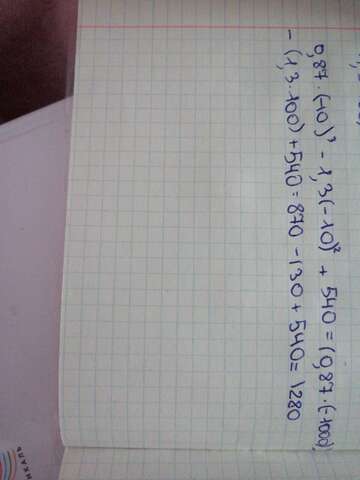 0,87·(-10)³ - 1,3(-10)² + 540 = (0,87·(-1000)
- (1,3·100) + 540 = 870 - 130 + 540 = 1280
ИКАЛЬ